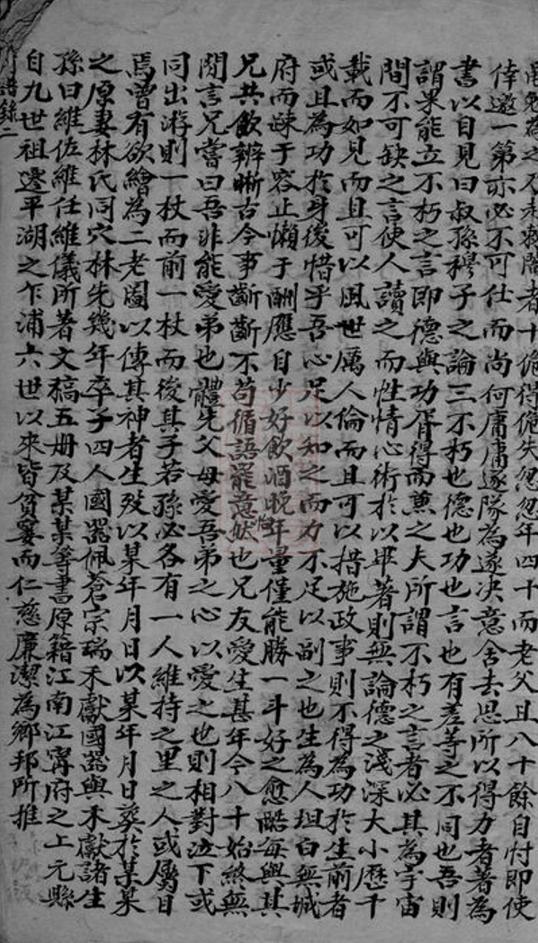 不走棘闈者十
倖邀一第亦必不可仕而尚何庸庸逐隊為遂决意舍去思所以得力者著為
書以自見曰叔孫穆子之論三不朽也德也功也言也有差等之不同也吾則
謂果能立不朽之言即德與功胥得而兼之夫所謂不朽之言者必其為宇宙
間不可缺之言使人讀之而性情心術於以畢著則無論德之淺深大小歷千
載而如見而且可以風世厲人倫而且可以措施政事則不得為功於生前者
或且為功於身後惜乎吾心足以知之而力不足以副之也生為人坦白無城
府而疎于容止懶于酬應自少好飲酒晚年量僅能勝一斗好之愈酷每與其
兄共飲辨晰古今事齗齗不苟循語罷意怡然也兄友愛生甚年今八十始終無
閒言兄嘗曰吾非能愛弟也體先父母愛吾弟之心以愛之也則相對泣下或
同出游則一杖而前一杖而後其子若孫必各有一人維持之里之人或屬目
焉曾有欲繪為二老圖以傳其神者生歿以某年月日以某年月日葬於某某
之原妻林氏同穴林先幾年卒子四人國器佩蒼宗瑞禾獻國器與禾獻諸生
孫曰維伍維任維儀所著文稿五册及某某等書原籍江南江寧府之上元縣
自九世祖遷平湖之乍浦六世以來皆貧窶而仁慈廉潔為鄉邦所推